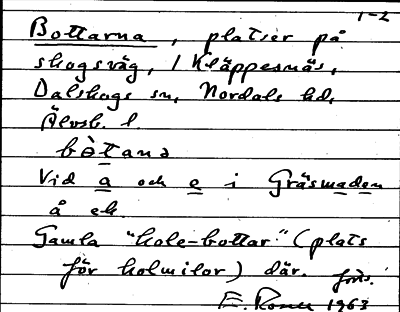 1-2
Bottarna, platser på
skogsväg, i Kläppesnäs,
Dalskogs sn, Nordals hd,
Älvsb. l.
bòtana
Vid a och e i Gräsmaden
å ek.
Gamla "kole-bottar" (plats
för kolmilor) där.
E. 1963